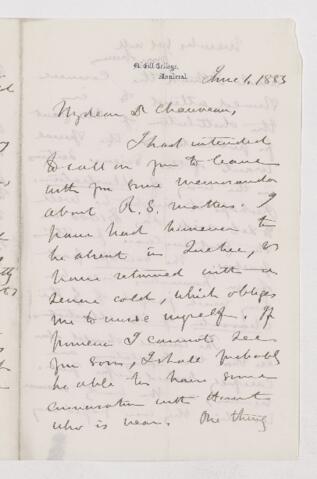 McGill College,
Montreal.
June 1, 1883
My dear Dr Chauveau,
I had intended
to call on you to leave
with you some memoranda
about R.S. matters. I
have had however to
be absent in Quebec, &
have returned with a
severe cold, which obliges
me to nurse myself. If
however I cannot see
you soon, I shall probably
be able to have some
conversation with
who is near. The thing